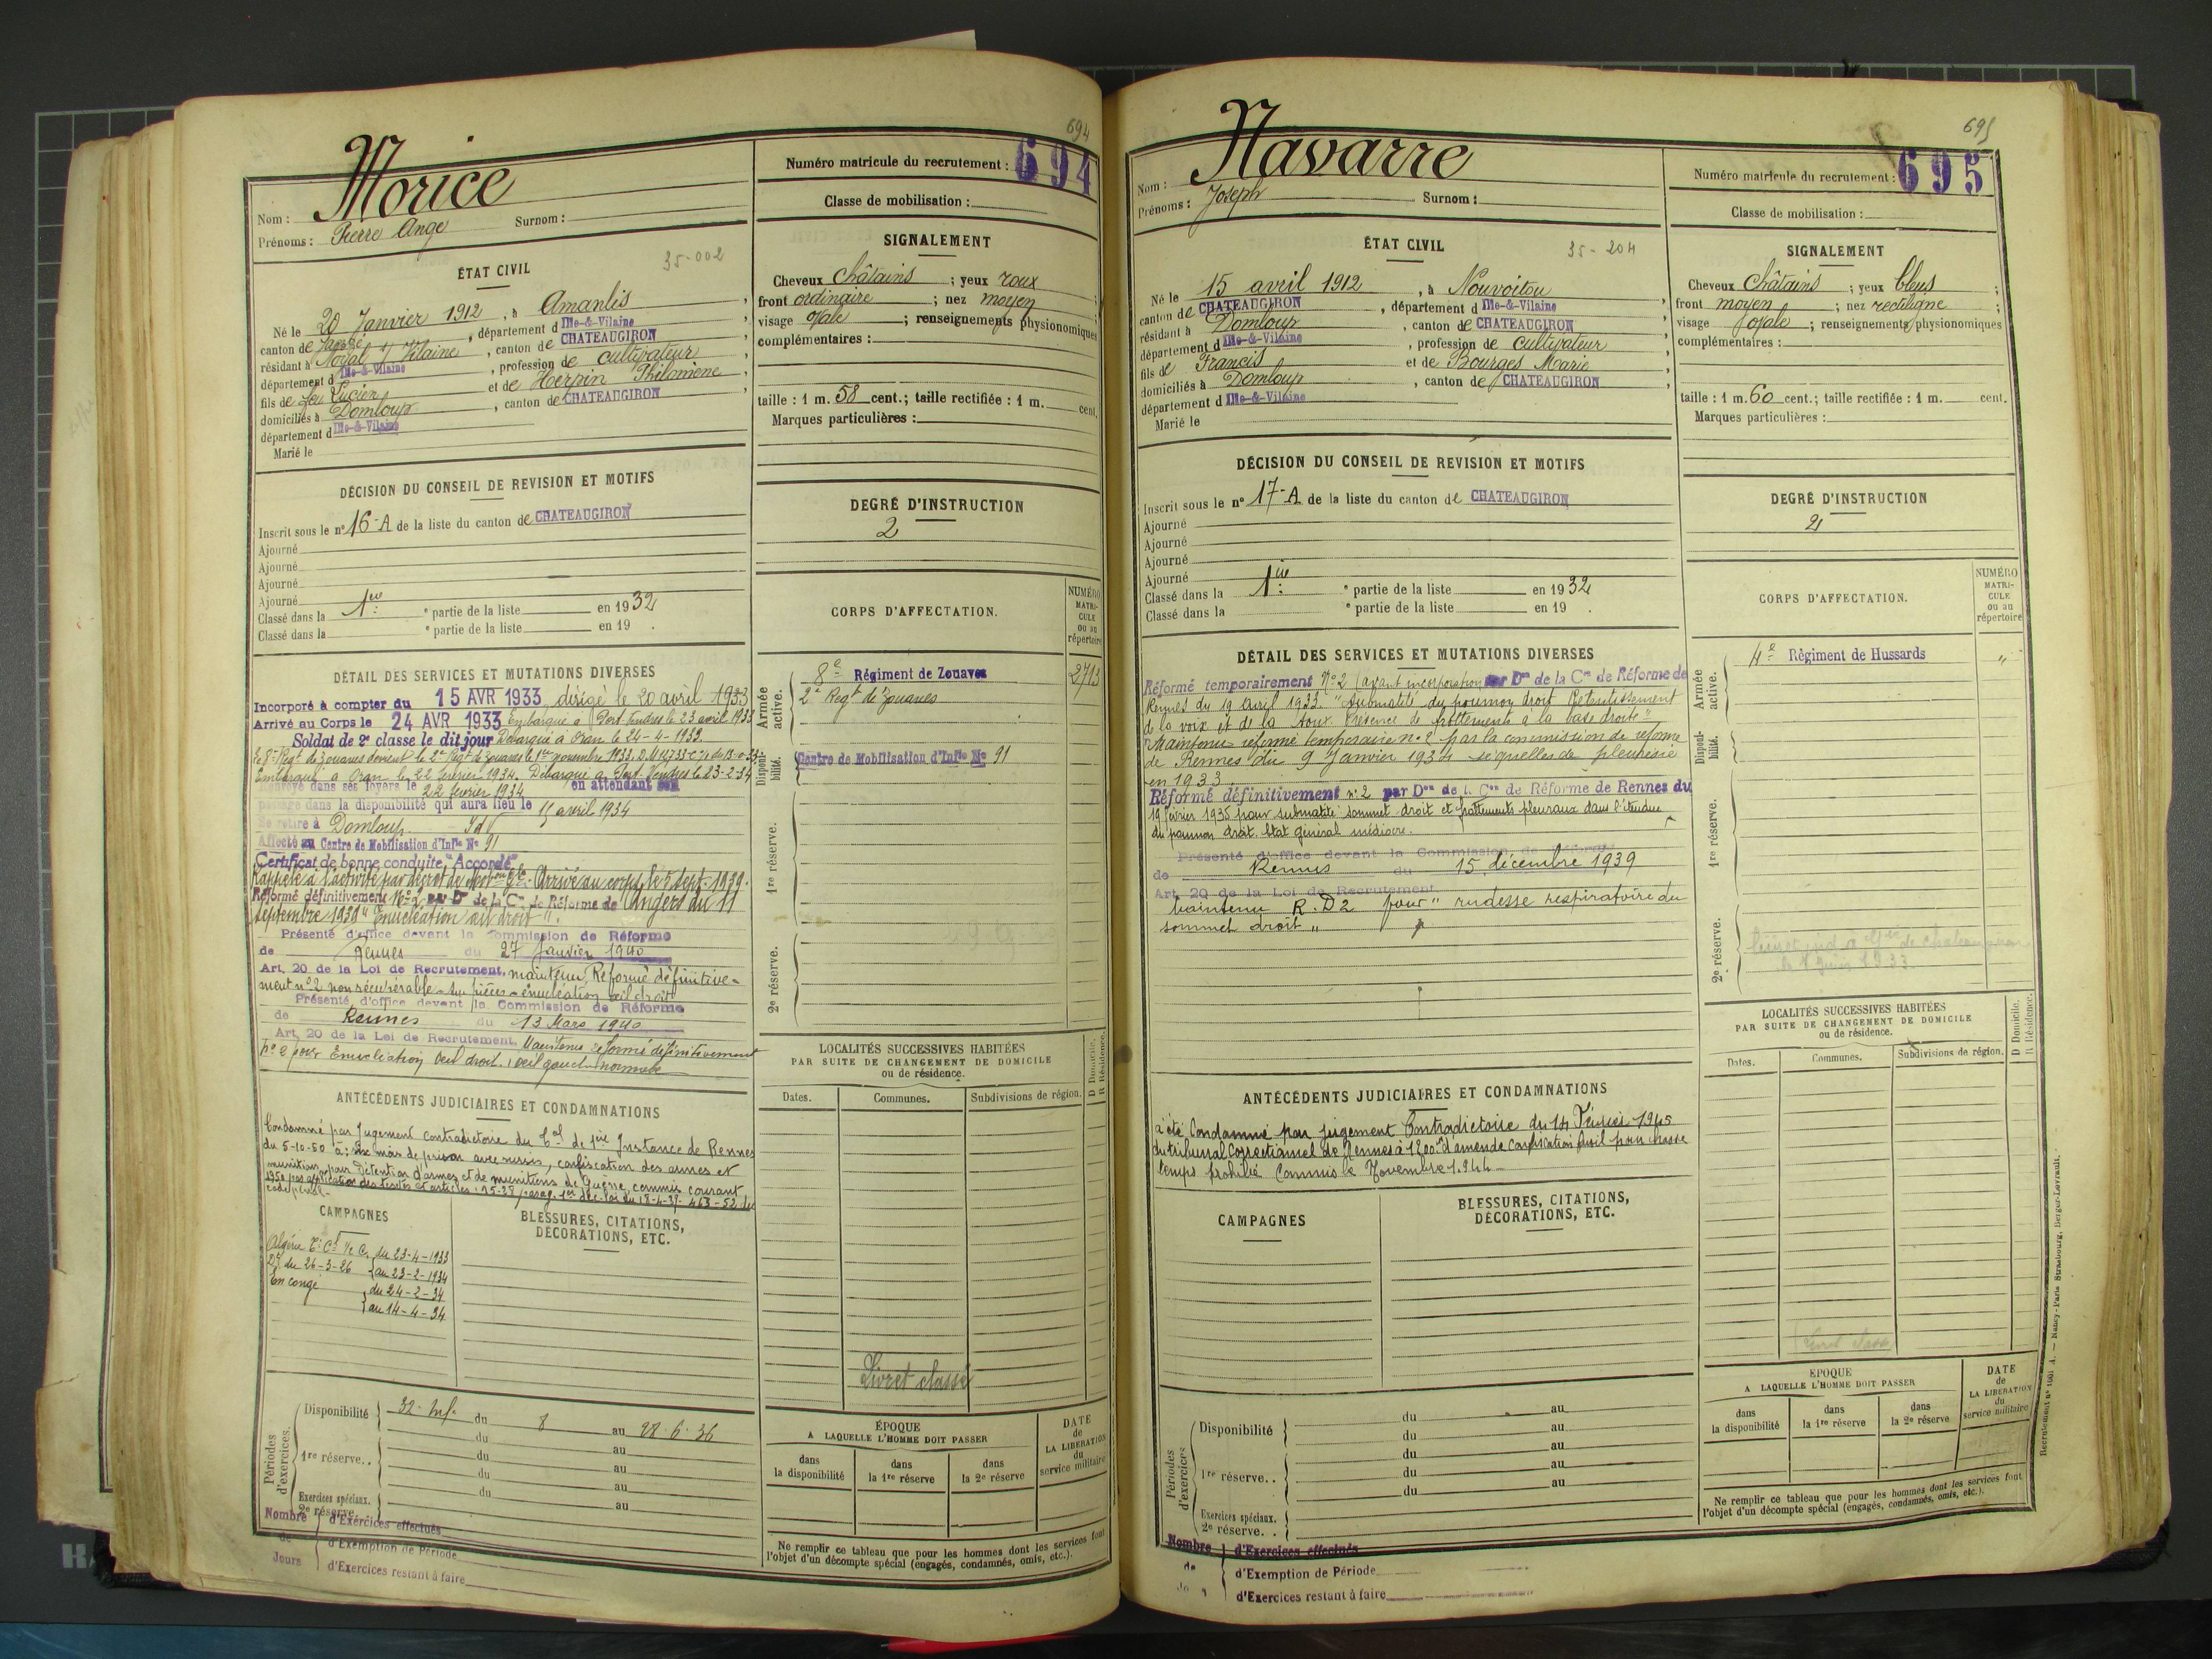 694
Morice
Nom :
Prénoms : Pierre Ange Surnom :
Numéro matricule du recrutement : 694
Classe de mobilisation :
ÉTAT CIVIL
35-002
Né le 20 Janvier 1912, à Amanlis,
canton de Janzé, département d Ille-&-Vilaine,
résidant à Noyal s/ Vilaine, canton de CHATEAUGIRON,
département d Ille-&-Vilaine, profession de cultivateur,
fils de feu Lucien et de Herpin Philomène,
domiciliés à Domloup, canton de CHATEAUGIRON,
département d Ille-&-Vilaine
Marié le
SIGNALEMENT
Cheveux châtains ; yeux roux ;
front ordinaire ; nez moyen ;
visage ovale ; renseignements physionomiques
complémentaires :
taille : 1 m. 58 cent.; taille rectifiée : 1 m. cent.
Marques particulières :
DÉCISION DU CONSEIL DE REVISION ET MOTIFS
Inscrit sous le n° 16-A de la liste du canton de CHATEAUGIRON
Ajourné
Ajourné
Ajourné
Ajourné
Classé dans la 1re e partie de la liste en 1932
Classé dans la e partie de la liste en 19 .
DEGRÉ D'INSTRUCTION
2
DÉTAIL DES SERVICES ET MUTATIONS DIVERSES
Incorporé à compter du 15 AVR 1933 dirigé le 20 avril 1933
Arrivé au Corps le 24 AVR 1933 Embarqué à Port Vendres le 23 avril 1933
Soldat de 2e classe le dit jour Débarqué à Oran le 24-4-1933.
Le 8e Régt de Zouaves devient le 2e Régt de Zouaves le 1er novembre 1933.
Embarqué à Oran le 22 février 1934. Débarqué à Port-Vendres le 23-2-34
Renvoyé dans ses foyers le 22 février 1934 en attendant son
passage dans la disponibilité qui aura lieu le 15 avril 1934
Se retire à Domloup IdV
Affecté au Centre de Mobilisation d'Infie N° 91
Certificat de bonne conduite "Accordé"
Rappelé à l'activité par décret de Mobon Gle. Arrivé au corps le 5 sept. 1939.
Réformé définitivement N° 2 par Don de la Con de Réforme de Angers du 11
septembre 1939 "Enucléation œil droit".
Présenté d'office devant la Commission de Réforme
de Rennes du 27 Janvier 1940
Art. 20 de la Loi de Recrutement. maintenu Réformé définitive-
ment n° 2 non récupérable - énucléation œil droit
Présenté d'office devant la Commission de Réforme
de Rennes du 13 Mars 1940
Art. 20 de la Loi de Recrutement. Maintenu réformé définitivement
n° 2 pour Enucléation œil droit. œil gauche normale
CORPS D'AFFECTATION.
NUMÉRO MATRICULE ou au répertoire
Armée active.
8e Régiment de Zouaves 2713
2e Régt de Zouaves
Disponibilité.
Centre de Mobilisation d'Infie N° 91
1re réserve.
2e réserve.
LOCALITÉS SUCCESSIVES HABITÉES
PAR SUITE DE CHANGEMENT DE DOMICILE
ou de résidence.
Dates. Communes. Subdivisions de région. D Domicile. R Résidence.
Livret classé
ANTÉCÉDENTS JUDICIAIRES ET CONDAMNATIONS
Condamné par Jugement contradictoire du Cal de 1ère Instance de Rennes
du 5-10-50 à : six mois de prison avec sursis, confiscation des armes et
munitions, pour Détention d'armes et de munitions de Guerre, commis courant
1950 par application des textes et articles
CAMPAGNES
Algérie du 23-4-1933
D. du 26-3-26 au 23-2-1934
En congé du 24-2-34
au 14-4-34
BLESSURES, CITATIONS,
DÉCORATIONS, ETC.
Périodes d'exercices.
Disponibilité 32e Inf. du 8 au 28-6-36
du au
1re réserve.. du au
du au
du au
Exercices spéciaux. au
2e réserve..
Nombre de Jours
d'Exercices effectués
d'Exemption de Période
d'Exercices restant à faire
ÉPOQUE
A LAQUELLE L'HOMME DOIT PASSER
dans la disponibilité
dans la 1re réserve
dans la 2e réserve
DATE de LA LIBÉRATION du service militaire
Ne remplir ce tableau que pour les hommes dont les services font
l'objet d'un décompte spécial (engagés, condamnés, omis, etc.).
695
Navarre
Nom :
Prénoms : Joseph Surnom :
Numéro matricule du recrutement : 695
Classe de mobilisation :
ÉTAT CIVIL
35-204
Né le 15 avril 1912, à Nouvoitou,
canton de CHATEAUGIRON, département d Ille-&-Vilaine,
résidant à Domloup, canton de CHATEAUGIRON,
département d Ille-&-Vilaine, profession de cultivateur,
fils de Francis et de Bourges Marie,
domiciliés à Domloup, canton de CHATEAUGIRON,
département d Ille-&-Vilaine
Marié le
SIGNALEMENT
Cheveux châtains ; yeux bleus ;
front moyen ; nez rectiligne ;
visage ovale ; renseignements physionomiques
complémentaires :
taille : 1 m. 60 cent.; taille rectifiée : 1 m. cent.
Marques particulières :
DÉCISION DU CONSEIL DE REVISION ET MOTIFS
Inscrit sous le n° 17-A de la liste du canton de CHATEAUGIRON
Ajourné
Ajourné
Ajourné
Ajourné
Classé dans la 1re e partie de la liste en 1932
Classé dans la e partie de la liste en 19 .
DEGRÉ D'INSTRUCTION
2
DÉTAIL DES SERVICES ET MUTATIONS DIVERSES
Réformé temporairement N° 2 (avant incorporation) par Don de la Con de Réforme de
Rennes du 19 Avril 1933. "Submatité du poumon droit Retentissement
de la voix et de la toux. Présence de frottements à la base droite"
Maintenu réformé temporaire n° 2 par la commission de réforme
de Rennes du 9 Janvier 1934 séquelles de pleurésie
en 1933
Réformé définitivement n° 2 par Don de la Con de Réforme de Rennes du
19 février 1935 pour submatité sommet droit et frottements pleuraux dans l'étendue
du poumon droit. Etat général médiocre.
Présenté d'office devant la Commission de Réforme
de Rennes du 15 décembre 1939
Art. 20 de la Loi de Recrutement
Maintenu R.D2 pour "rudesse respiratoire du
sommet droit"
CORPS D'AFFECTATION.
NUMÉRO MATRICULE ou au répertoire
Armée active.
4e Régiment de Hussards "
Disponibilité.
1re réserve.
2e réserve.
LOCALITÉS SUCCESSIVES HABITÉES
PAR SUITE DE CHANGEMENT DE DOMICILE
ou de résidence.
Dates. Communes. Subdivisions de région. D Domicile. R Résidence.
Livret classé
ANTÉCÉDENTS JUDICIAIRES ET CONDAMNATIONS
a été Condamné par jugement Contradictoire du 14 Février 1945
du tribunal Correctionnel de Rennes à 1200 frs d'amende confiscation fusil pour chasse
temps prohibé Commis le Novembre 1.944
CAMPAGNES
BLESSURES, CITATIONS,
DÉCORATIONS, ETC.
Périodes d'exercices
Disponibilité du au
du au
1re réserve.. du au
du au
du au
Exercices spéciaux.
2e réserve. .
Nombre de Jours
d'Exercices effectués
d'Exemption de Période
d'Exercices restant à faire
ÉPOQUE
A LAQUELLE L'HOMME DOIT PASSER
dans la disponibilité
dans la 1re réserve
dans la 2e réserve
DATE de LA LIBÉRATION du service militaire
Ne remplir ce tableau que pour les hommes dont les services font
l'objet d'un décompte spécial (engagés, condamnés, omis, etc.).
Recrutement N° 1001 A. — Nancy-Paris Strasbourg, Berger-Levrault.